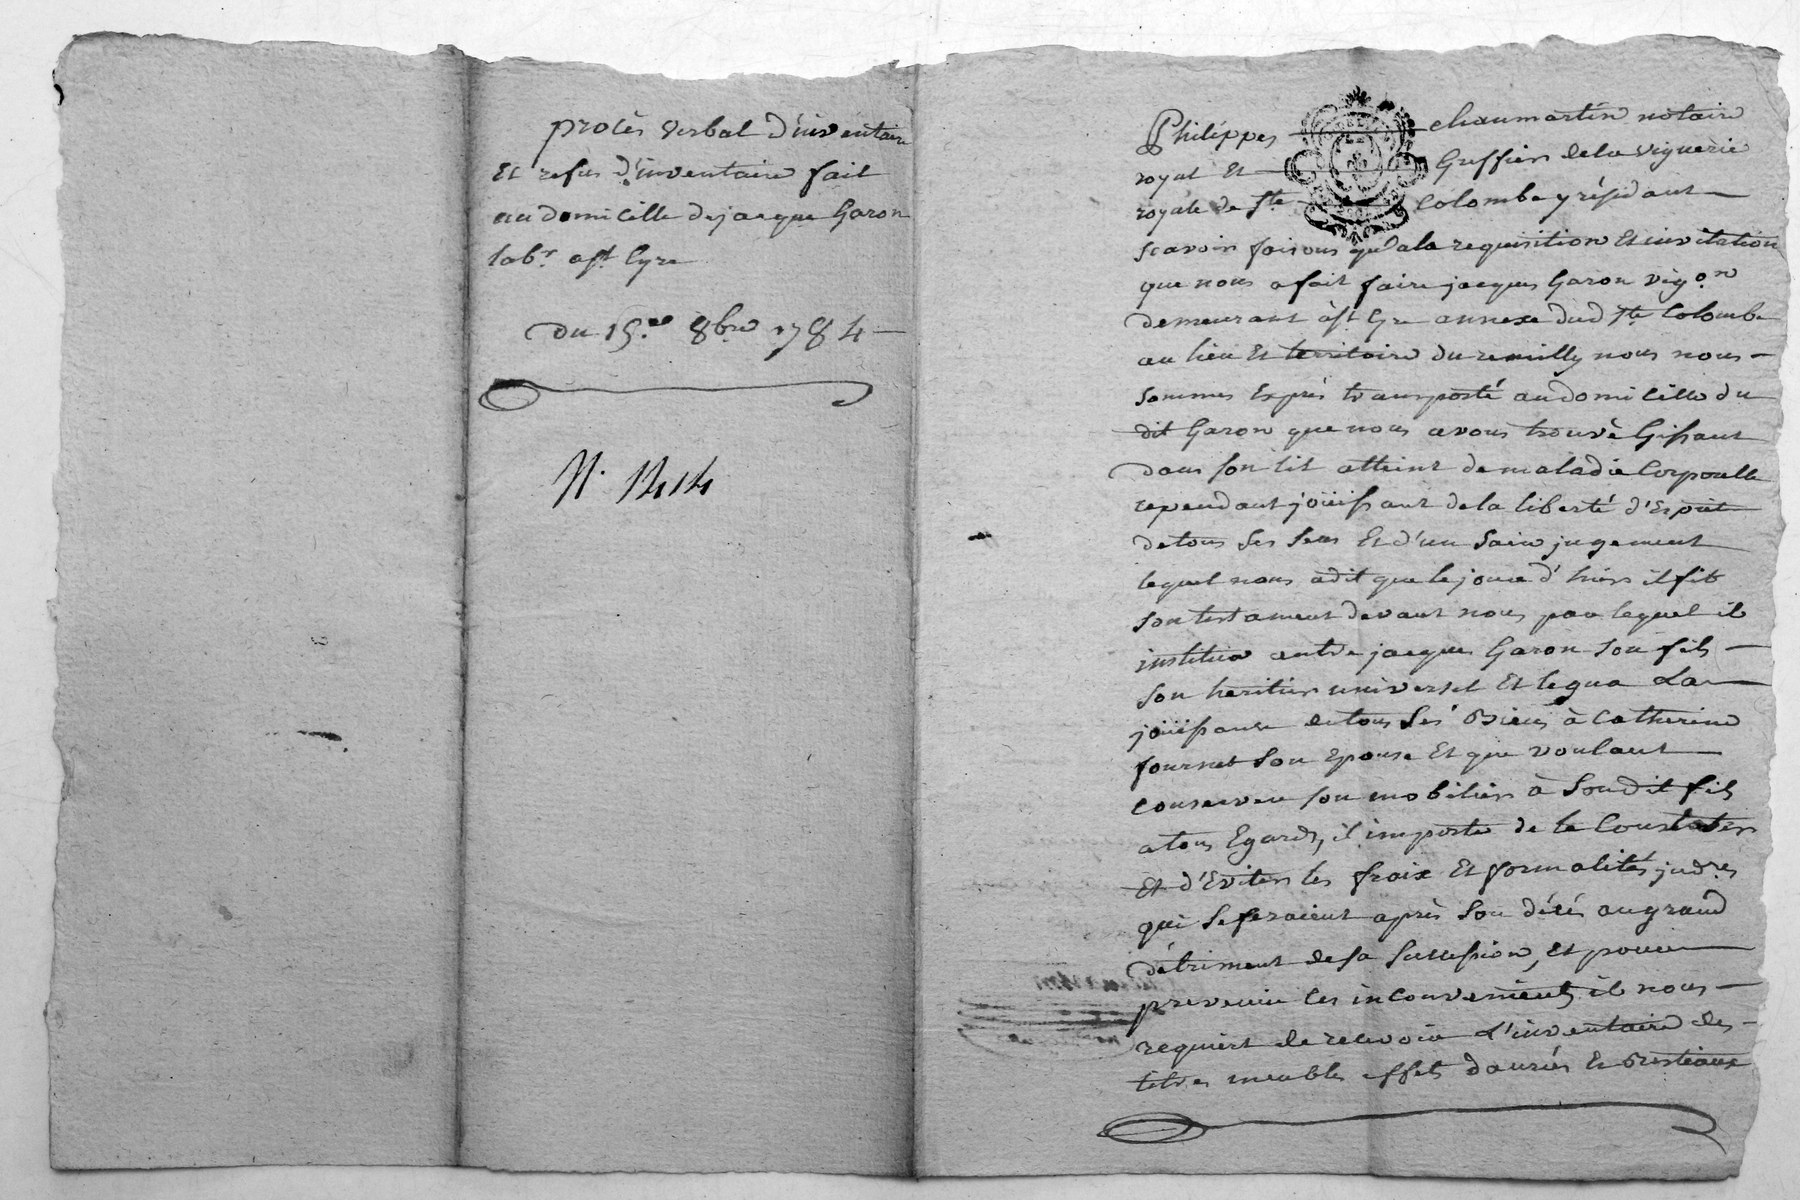 procès verbal d'inventaire
Et refus d'inventaire fait
au domicille de jacque Garon
labr. a st Cyre
Du 15.e 8bre 1784
N. 1414
Philippes chaumartin notaire
royal Et Greffier de la viguerie
royale de ste Colombe y résidant
scavoir faisons qu'a la requisition Et invitation
que nous a fait faire jacques Garon vigon
demeurant à st Cyre annexe dud ste Colombe
au lieu Et territoire du remilly nous nous
sommes Exprès transporté au domicille du
dit Garon que nous avons trouvé Gissant
dans son lit atteint de maladie Corporelle
cependant joüissant de la liberté d'Esprit
de tous ses sens Et d'un sain jugement
lequel nous a dit que le jour d'hier il fit
son testament devant nous par lequel il
institua autre jacques Garon son fils
son heritier universel Et legua La
joüissance de tous ses Biens à Catherine
fournet son Epouse Et que voulant
conserver son mobilier à son dit fils
a tous Egards, il importe de le Constater
Et d'Eviter les fraix Et formalités judres
qui se feraient après son décés au grand
détriment de sa succession, Et pour
prevenir ces inconvenients il nous
requiert de recevoir L'inventaire des
titres meubles effets danrées Et Bestiaux